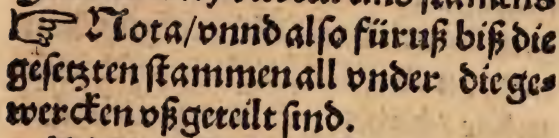 ☞ Nota/vnnd also füruß biß die
gesetzten stammen all vnder die ge⸗
wercken vß geteilt sind.